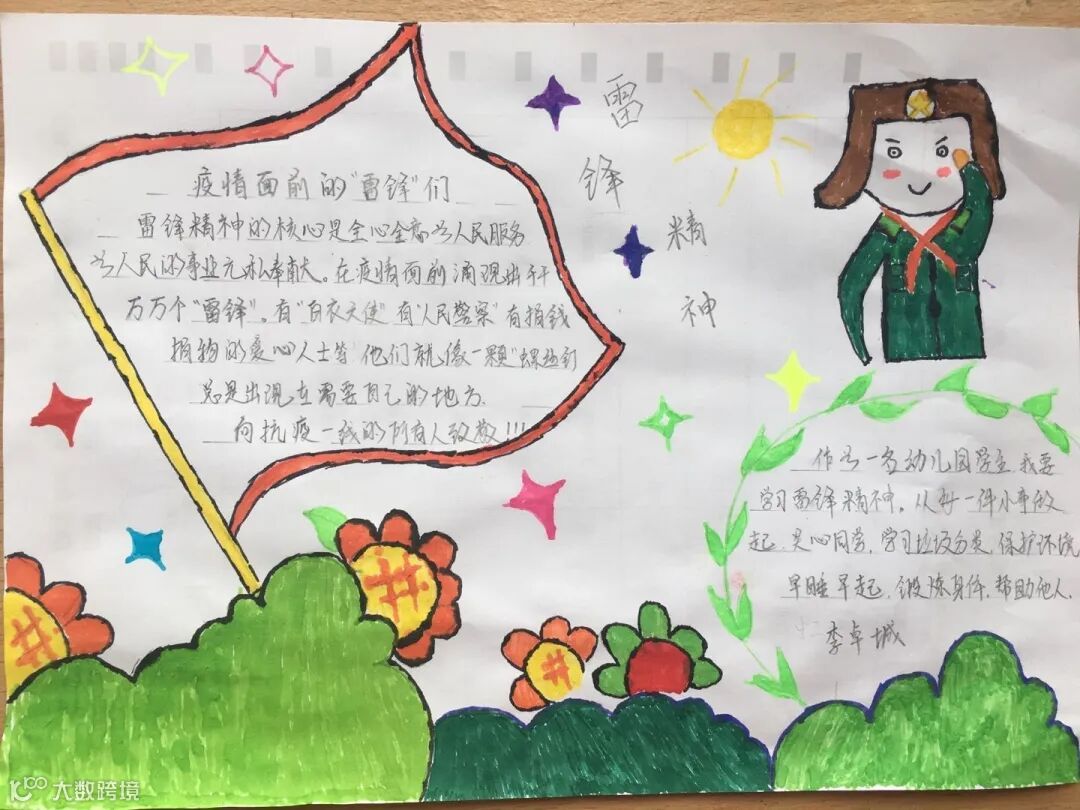 雷
锋
精
神
疫情面前的“雷锋”们
雷锋精神的核心是全心全意为人民服务
为人民的事业无私奉献。在疫情面前涌现出千千
万万个“雷锋”。有“白衣天使”有“人民警察”有捐钱
捐物的爱心人士等 他们就像一颗“螺丝钉
总是出现在需要自己的地方.
向抗疫一线的所有人致敬!!!
作为一名幼儿园学生 我要
学习雷锋精神。从每一件小事做
起.关心同学.学习垃圾分类.保护环境
早睡早起.锻炼身体.帮助他人.
李卓城
大数跨境